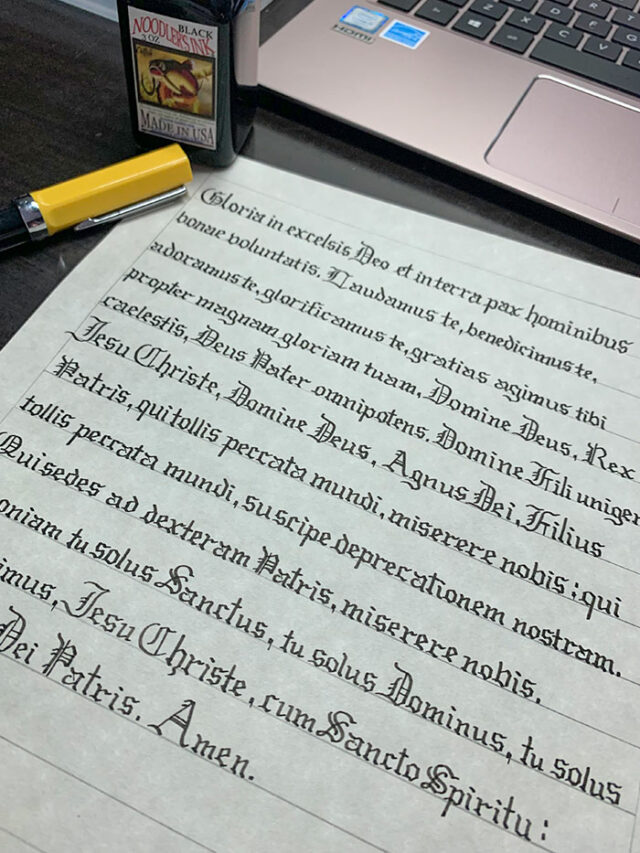 BLACK
3 OZ
NOODLER'S INK
MADE IN USA
HDMI
Gloria in excelsis Deo et in terra pax hominibus
bonae voluntatis. Laudamus te, benedicimus te,
adoramus te, glorificamus te, gratias agimus tibi
propter magnam gloriam tuam, Domine Deus, Rex
caelestis, Deus Pater omnipotens. Domine Fili unigen
Jesu Christe, Domine Deus, Agnus Dei, Filius
Patris, qui tollis peccata mundi, miserere nobis; qui
tollis peccata mundi, suscipe deprecationem nostram.
Qui sedes ad dexteram Patris, miserere nobis.
oniam tu solus Sanctus, tu solus Dominus, tu solus
imus, Jesu Christe, cum Sancto Spiritu:
Dei Patris. Amen.